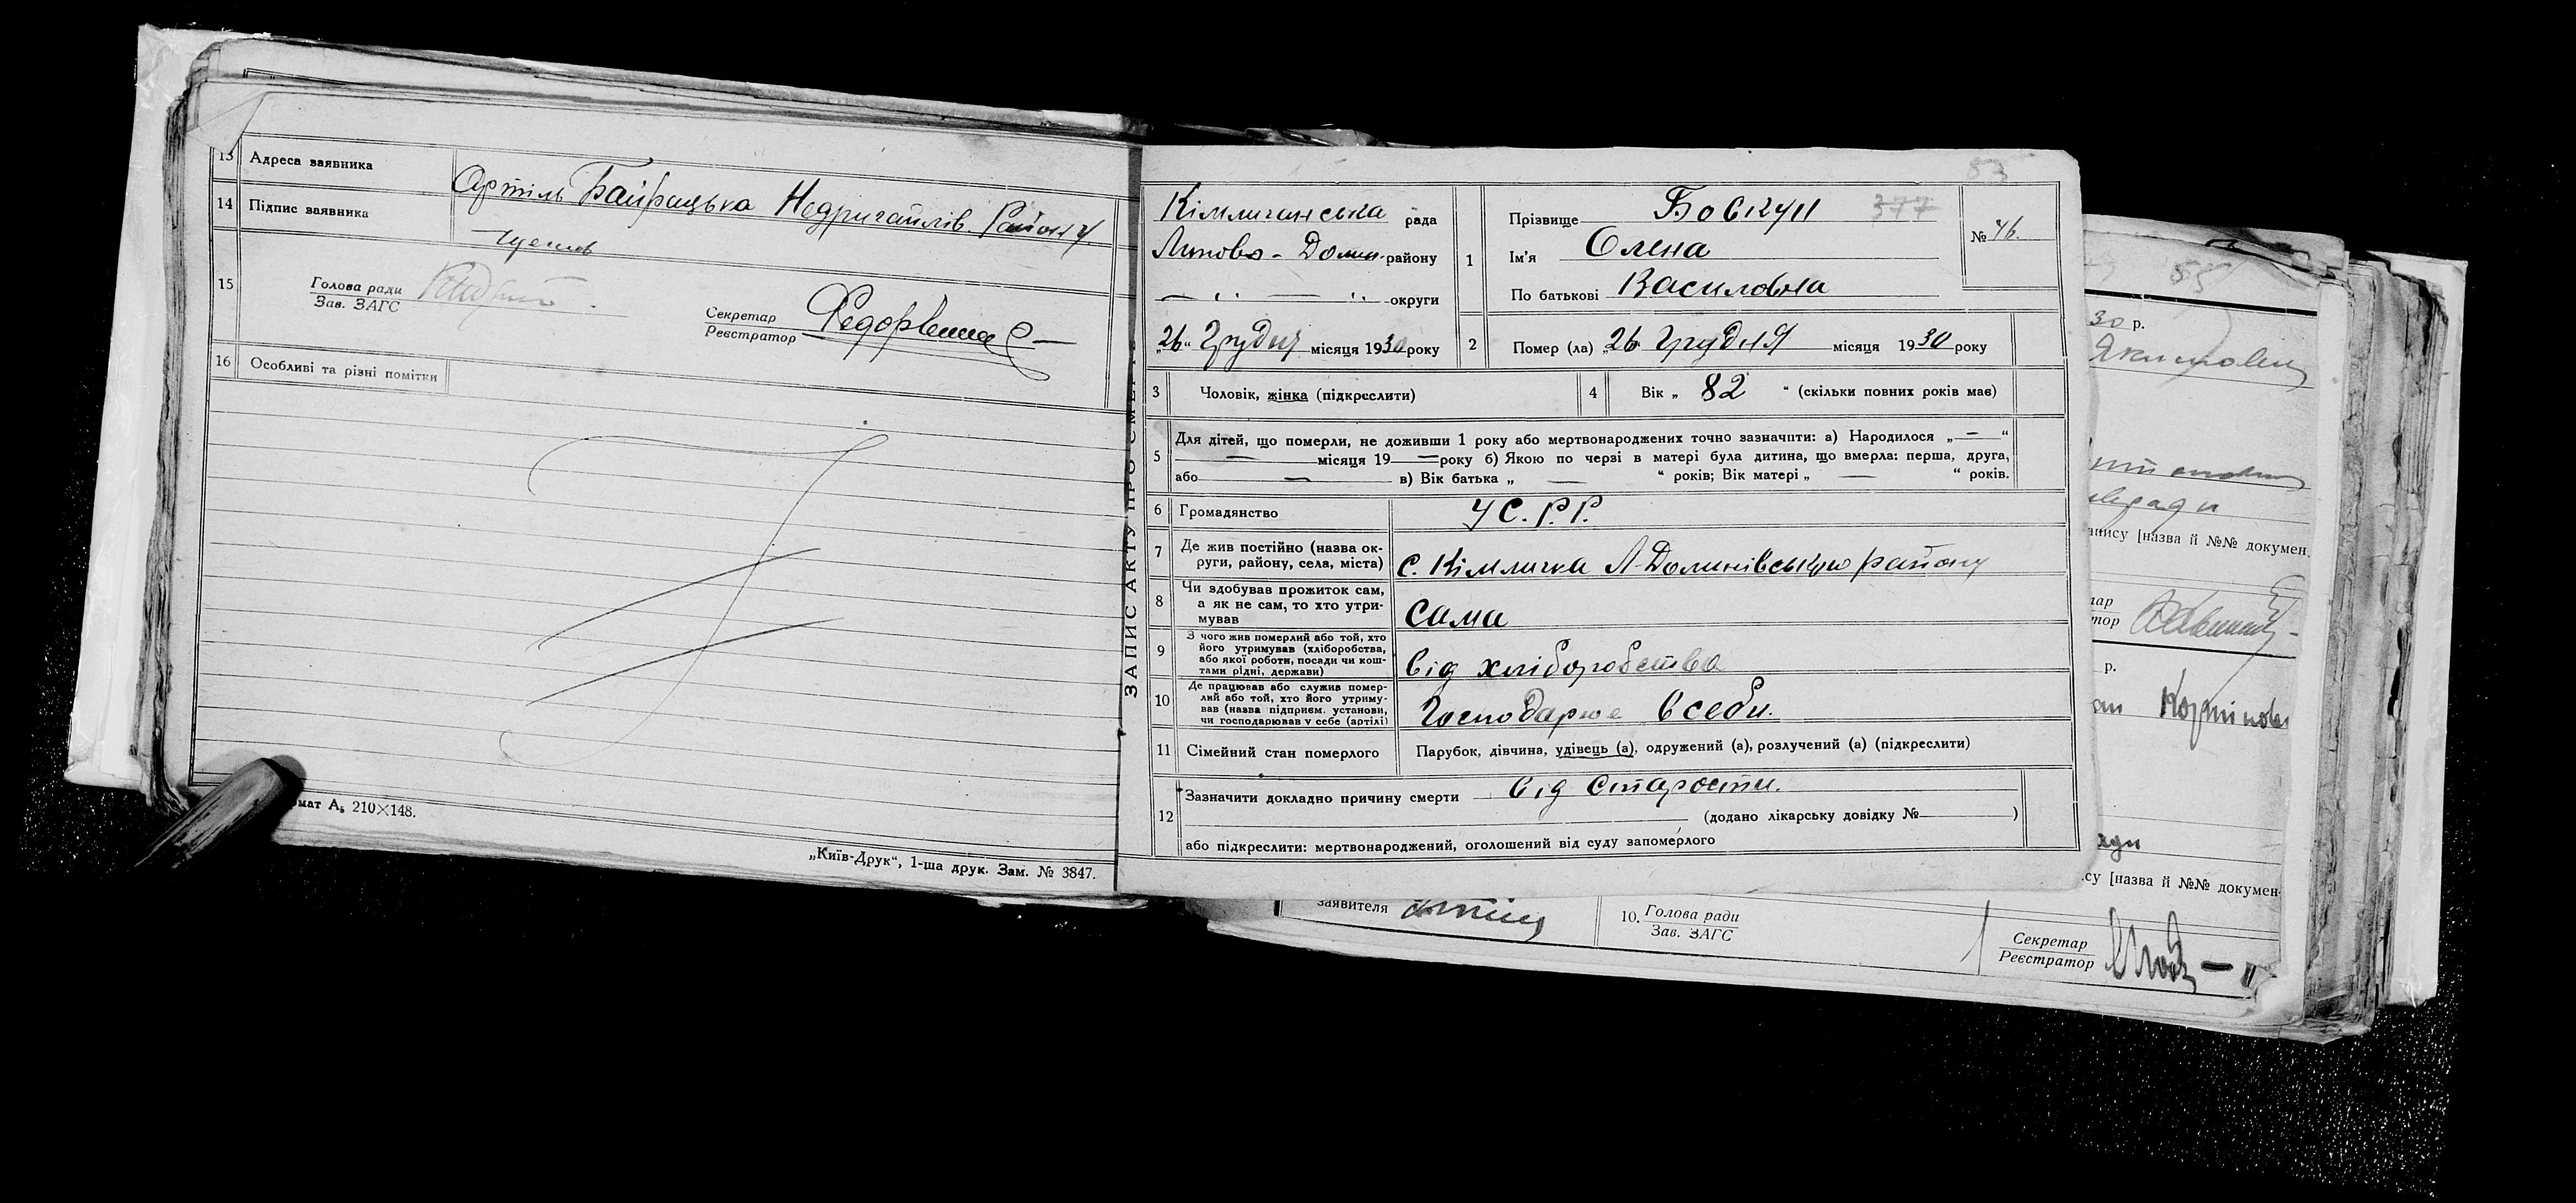 13 Адреса заявника
Артіль Байрацька Недригайлів. Району
14 Підпис заявника
15
Голова ради
Зав. ЗАГС
Секретар
Реєстратор
16 Особливі та різні помітки
мат А₅ 210×148.
„Київ-Друк“, 1-ша друк. Зам. № 3847.
ЗАПИС АКТУ ПРО СМЕР
83
Кімличанська рада
Липово-Долин. району
округи
„26“ Грудня місяця 1930 року
1
Прізвище Бовкун 377
Ім'я Олена
По батькові Василовна
№ 46.
2 Помер (ла) „26 Грудня місяця 1930 року
3 Чоловік, жінка (підкреслити)
4 Вік „ 82 “ (скільки повних років має)
5 Для дітей, що померли, не доживши 1 року або мертвонароджених точно зазначити: а) Народилося „—“
— місяця 19 — року б) Якою по черзі в матері була дитина, що вмерла: перша, друга,
або — в) Вік батька „ — “ років; Вік матері „ — “ років.
6 Громадянство У С.Р.Р.
7 Де жив постійно (назва ок-
руги, району, села, міста) с. Кімличка Л-Долинівського району
8 Чи здобував прожиток сам,
а як не сам, то хто утри-
мував сама
9 З чого жив померлий або той, хто
його утримував (хліборобства,
або якої роботи, посади чи кош-
тами рідні, держави) від хліборобства
10 Де працював або служив помер-
лий або той, хто його утриму-
вав (назва підприєм. установи,
чи господарював у себе (артілі) Господарює в себе.
11 Сімейний стан померлого Парубок, дівчина, удівець (а), одружений (а), розлучений (а) (підкреслити)
12 Зазначити докладно причину смерти від старости.
(додано лікарську довідку № )
або підкреслити: мертвонароджений, оголошений від суду запомерлого
55
30 р.
апису [назва й №№ докумен.
ар
тор
р.
ади
су [назва й №№ докумен.
заявителя
10. Голова ради
Зав. ЗАГС
Секретар
Реєстратор